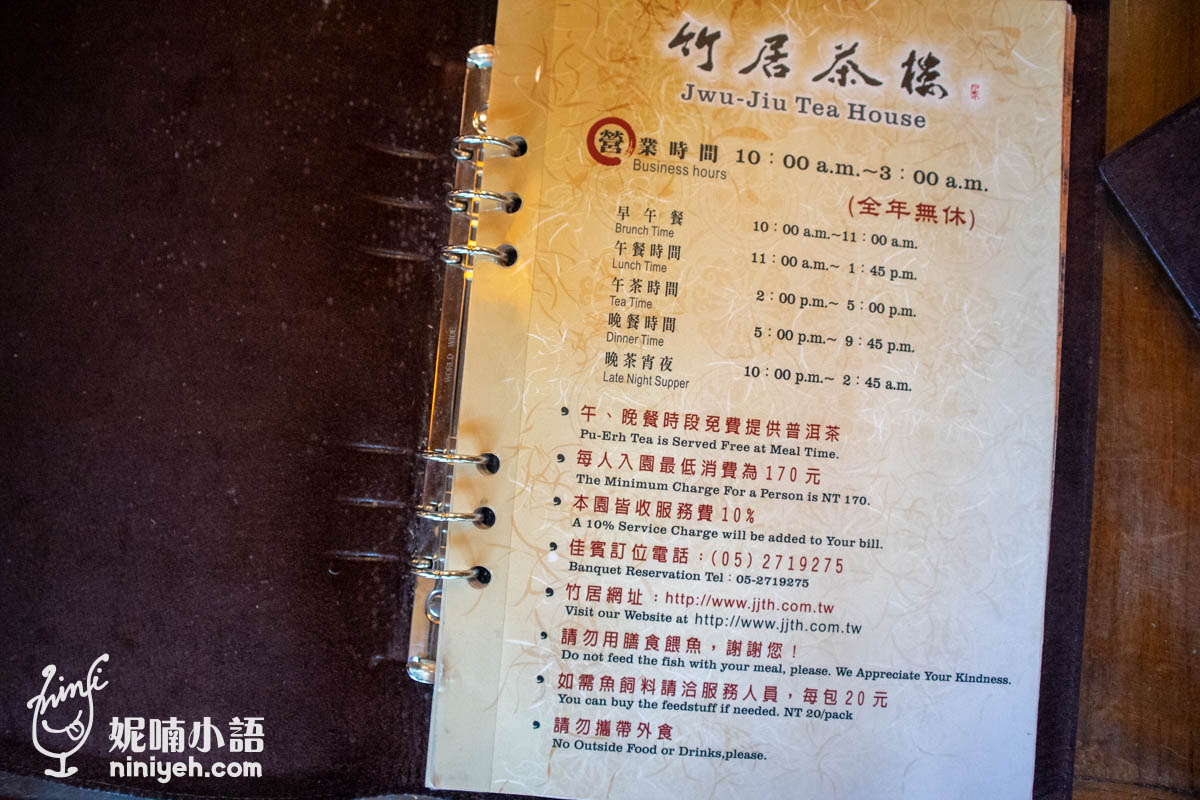 竹居茶樓
Jwu-Jiu Tea House
營業時間 10：00 a.m.~3：00 a.m.
Business hours
(全年無休)
早午餐 10：00 a.m.~11：00 a.m.
Brunch Time
午餐時間 11：00 a.m.~ 1：45 p.m.
Lunch Time
午茶時間 2：00 p.m.~ 5：00 p.m.
Tea Time
晚餐時間 5：00 p.m.~ 9：45 p.m.
Dinner Time
晚茶宵夜 10：00 p.m.~ 2：45 a.m.
Late Night Supper
午、晚餐時段免費提供普洱茶
Pu-Erh Tea is Served Free at Meal Time.
每人入園最低消費為170元
The Minimum Charge For a Person is NT 170.
本園皆收服務費10%
A 10% Service Charge will be added to Your bill.
佳賓訂位電話：(05) 2719275
Banquet Reservation Tel：05-2719275
竹居網址：http://www.jjth.com.tw
Visit our Website at http://www.jjth.com.tw
請勿用膳食餵魚，謝謝您！
Do not feed the fish with your meal, please. We Appreciate Your Kindness.
如需魚飼料請洽服務人員，每包20元
You can buy the feedstuff if needed. NT 20/pack
請勿攜帶外食
No Outside Food or Drinks,please.
WORLD WIDE
ninfi
妮喃小語
niniyeh.com